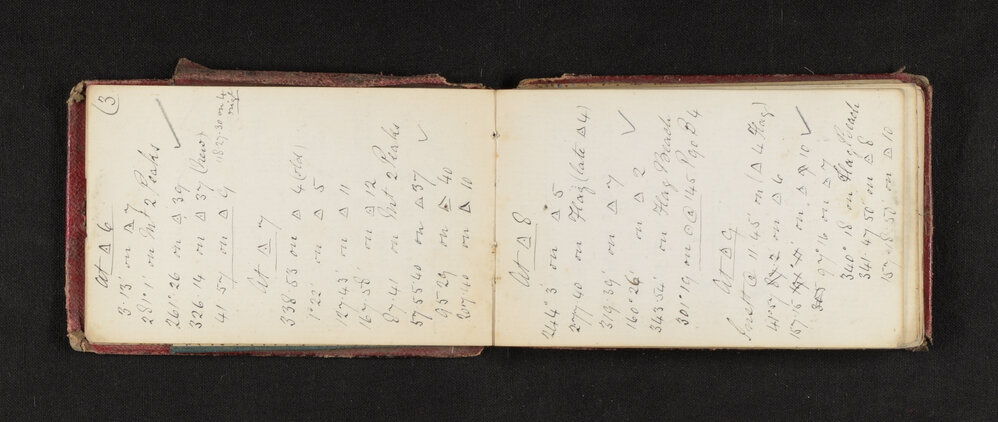 (3
At △ 6
3·13' on △ 7
281°·1 on Mt 2 Peaks
26°·26 on △ 39
326·14 on △ 37 (New)
(327·30 on 4
41·57 on △ 9
At △ 7
338·53 on △ 4 (old)
7°22' on △ 5
127·43' on △ 11
167·58' on △ 12
87·41 on Mt 2 Peaks
57·55·40 on △ 37
95·29 on △ 40
207·40 on △ 10
At △ 8
244°3' on △ 5
277·40 on Flag (late △ 4)
319·39' on △ 7
160°26' on △ 2
343·54' on Flag Beach
301°19 on @ @ 145 Pg 90 B4
At △ 9
Inst @ 11 45 on (△ 4 Flag)
41·57 on △ 6
157·5 on △ 10
97°16 on △ 7
340°18 on Flag Beach
341·47·50" on △ 8
157·8·50" on △ 10